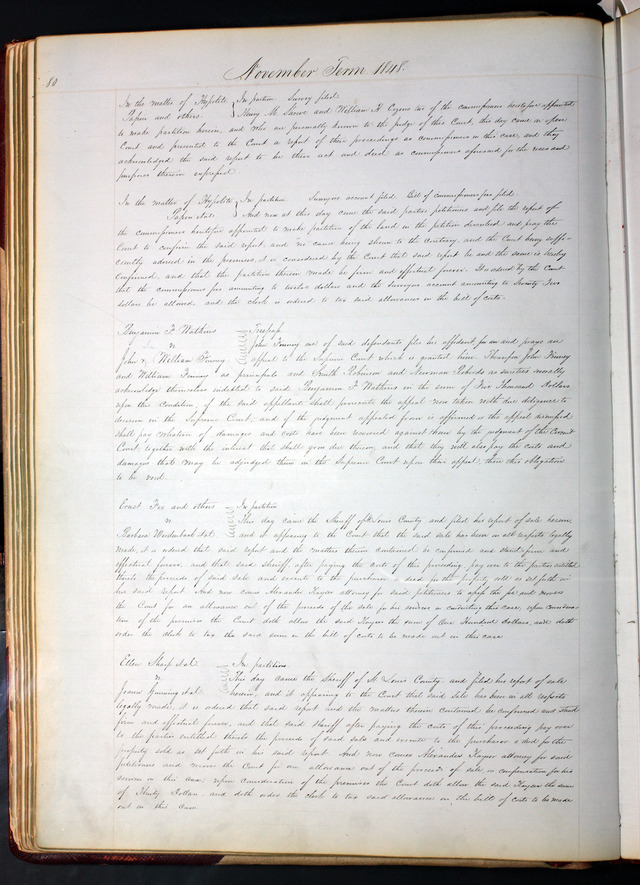 80
November Term 1848.
In the matter of Hypolite In partition Survey filed.
Papin and others Henry M. Shreve and William H Cozens two of the commissioners heretofore appointed
to make partition herein, and who are personally known to the judge of this Court, this day came in open
Court and presented to the Court a report of their proceedings as commissioners in this case, and they
acknowledged the said report to be their act and deed as commissioners aforesaid for the uses and
purposes therein expressed.
In the matter of Hypolite In partition Surveyors account filed. Bill of commissioners fees filed.
Papin et al. And now at this day come the said parties petitioners and file the report of
the commissioners heretofore appointed to make partition of the land in the petition described and pray the
Court to confirm the said report, and no cause being shown to the contrary, and the Court being suffi-
ciently advised in the premises, it is considered by the Court that said report be and the same is hereby
confirmed, and that the partition therein made be firm and effectual forever. It is ordered by the Court
that the commissioners fees amounting to twelve dollars and the surveyors account amounting to Twenty Two
dollars be allowed, and the clerk is ordered to tax said allowances in the bill of costs.
Benjamin F Watkins Trespass
vs John Finney one of said defendants files his affidavit for an and prays an
John & William Finney appeal to the Supreme Court which is granted him. Thereupon John Finney
and William Finney as principals and Smith Robinson and Newman Roberts as sureties severally
acknowledge themselves indebted to said Benjamin F Watkins in the sum of Two Thousand Dollars
upon this condition, if the said appellants shall prosecute the appeal now taken with due diligence to
decision in the Supreme Court, and if the judgment appealed from is affirmed or the appeal dismissed
shall pay whatever of damages and costs have been recovered against them by the judgment of the Circuit
Court together with the interest that shall grow due thereon, and that they will also pay the costs and
damages that may be adjudged them in the Supreme Court upon their appeal, then this obligation
to be void.
Ernst Fox and others In partition
vs This day came the Sheriff of St Louis County and filed his report of sale herein,
Barbara et al. and it appearing to the Court that the said sale has been in all respects legally
made, it is ordered that said report and the matters therein contained be confirmed and stand firm and
effectual forever, and that said sheriff after paying the costs of this proceeding pay over to the parties entitled
thereto the proceeds of said sale and execute to the purchaser a deed for the property sold as set forth in
his said report. And now comes Alexander Kayser attorney for said petitioners and moves
the Court for an allowance out of the proceeds of the sale for his services in conducting this case, upon considera-
tion of the premises the Court doth allow the said Kayser the sum of One Hundred Dollars, and doth
order the clerk to tax the said sum in the bill of costs to be made out in this case.
Ellen Sharp et al. In partition.
vs This day came the Sheriff of St Louis County and filed his report of sale
James Gunning et al. herein, and it appearing to the Court that said sale has been in all respects
legally made, it is ordered that said report and the matters therein contained be confirmed and stand
firm and effectual forever, and that said sheriff after paying the costs of this proceeding pay over
to the parties entitled thereto the proceeds of said sale and execute to the purchaser a deed for the
property sold as set forth in his said report. And now comes Alexander Kayser attorney for said
petitioners and moves the Court for an allowance out of the proceeds of sale, in compensation for his
services in this case; upon consideration of the premises the Court doth allow the said Kayser the sum
of Thirty Dollars, and doth order the clerk to tax said allowance in the bill of costs to be made
out in this case.